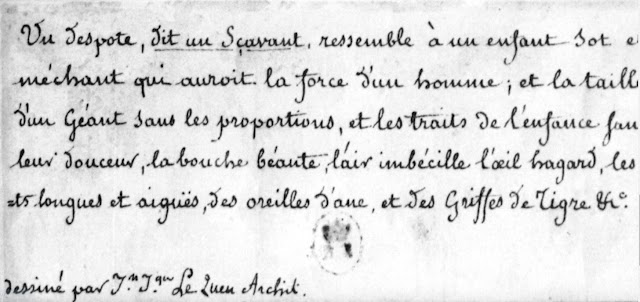 Un despote, dit un Sçavant, ressemble à un enfant sot e
méchant qui auroit la force d'un homme; et la taill
d'un Géant sans les proportions, et les traits de l'enfance san
leur douceur, la bouche béante, l'air imbécille l'œil hagard, les
=ts longues et aiguës, des oreilles d'ane, et des Griffes de Tigre &c.
dessiné par Jn Jque Le Queu Archit.